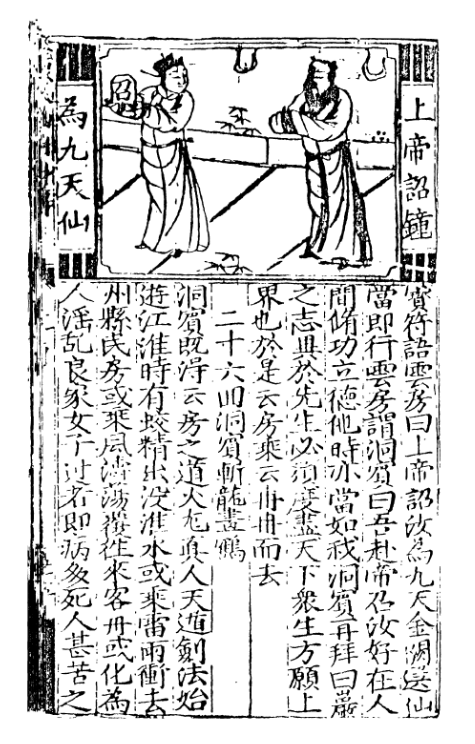 上帝詔鐘
為九天仙
賫符語雲房曰上帝詔汝為九天金闕選仙
當即行雲房謂洞賓曰吾赴帝召汝好在人
間脩功立德他時亦當如我洞賓再拜曰巖
之志異於先生必須度盡天下衆生方願上
界也於是云房乘云冉冉而去
二十六回洞賓斬龍畫鶴
洞賓既得云房之道火龙真人天遁劍法始
遊江淮時有蛟精出没淮水或乘雷雨衝去
州縣民房或乘風濤蕩覆往來客舟或化為
人滛乱良家女子过者即病多死人甚苦之